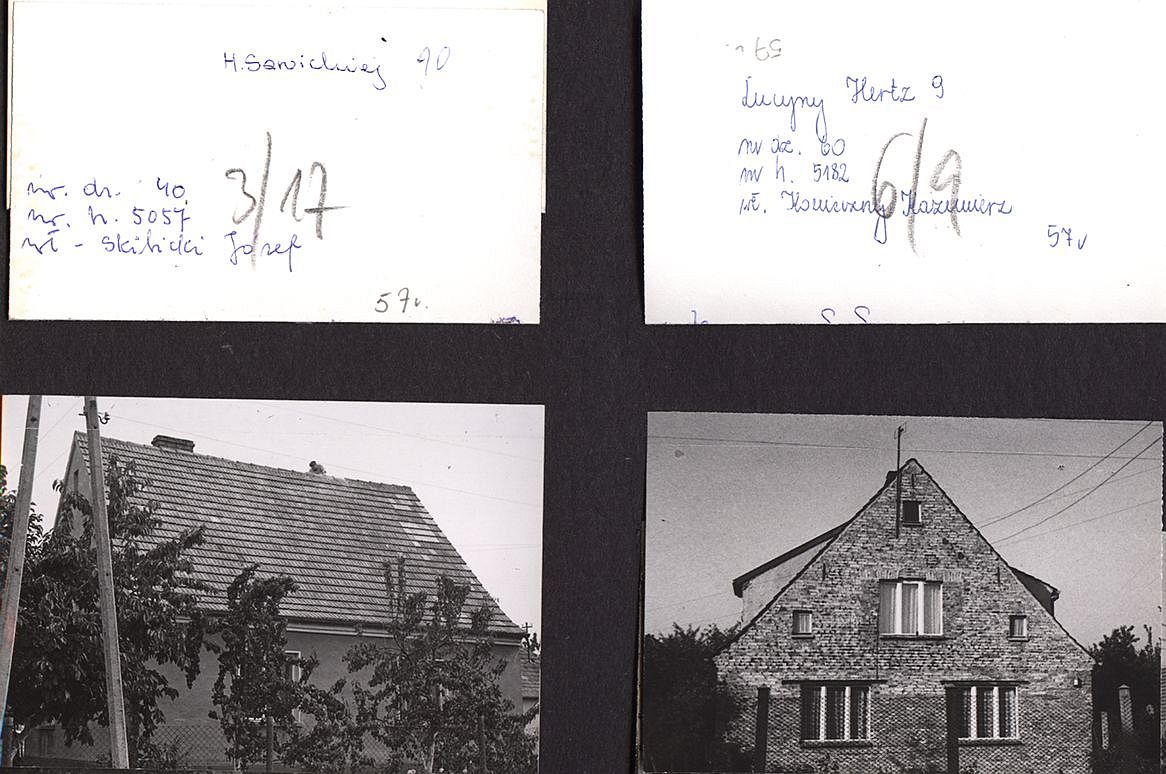 H. Sawickiej 90
3/17
nr. dz. 40
nr. h. 5057
wł - Skibicki Józef
57v.
59 v.
Lucyny Hertz 9
nr dz. 60
nr h. 5182
6/9
wł. Konieczny Kazimierz
57v